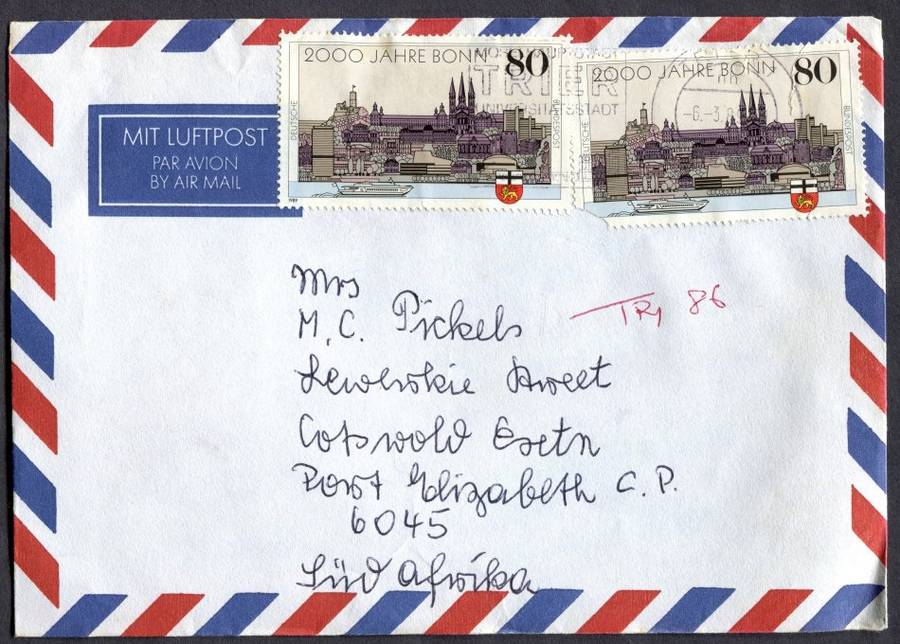 2000 JAHRE BONN 80
DEUTSCHE
BUNDESPOST
1989
2000 JAHRE BONN 80
DEUTSCHE
BUNDESPOST
TRIER
UNIVERSITÄTSSTADT
-6.-3.
MIT LUFTPOST
PAR AVION
BY AIR MAIL
Mrs
M. C. Pickels
TRY 86
Cotswold Esetn
Port Elizabeth C. P.
6045
Süd Afrika